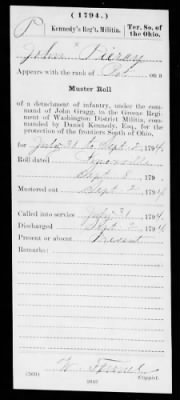 (1794.)
P Kennedy's Reg't, Militia. Ter. So. of the Ohio.
John Piercy
Appears with the rank of Pvt. on a
Muster Roll
of a detachment of infantry, under the com-
mand of John Gragg, in the Greene Regi-
ment of Washington District Militia, com-
manded by Daniel Kennedy, Esq., for the
protection of the frontiers South of Ohio,
for July 31 to Sept. 2, 1794.
Roll dated
Sept 8, 179
Mustered out Sept 2, 1794
Called into service July 31, 1794.
Discharged Sept. 2, 1794
Present or absent Present
Remarks:
Copyist.